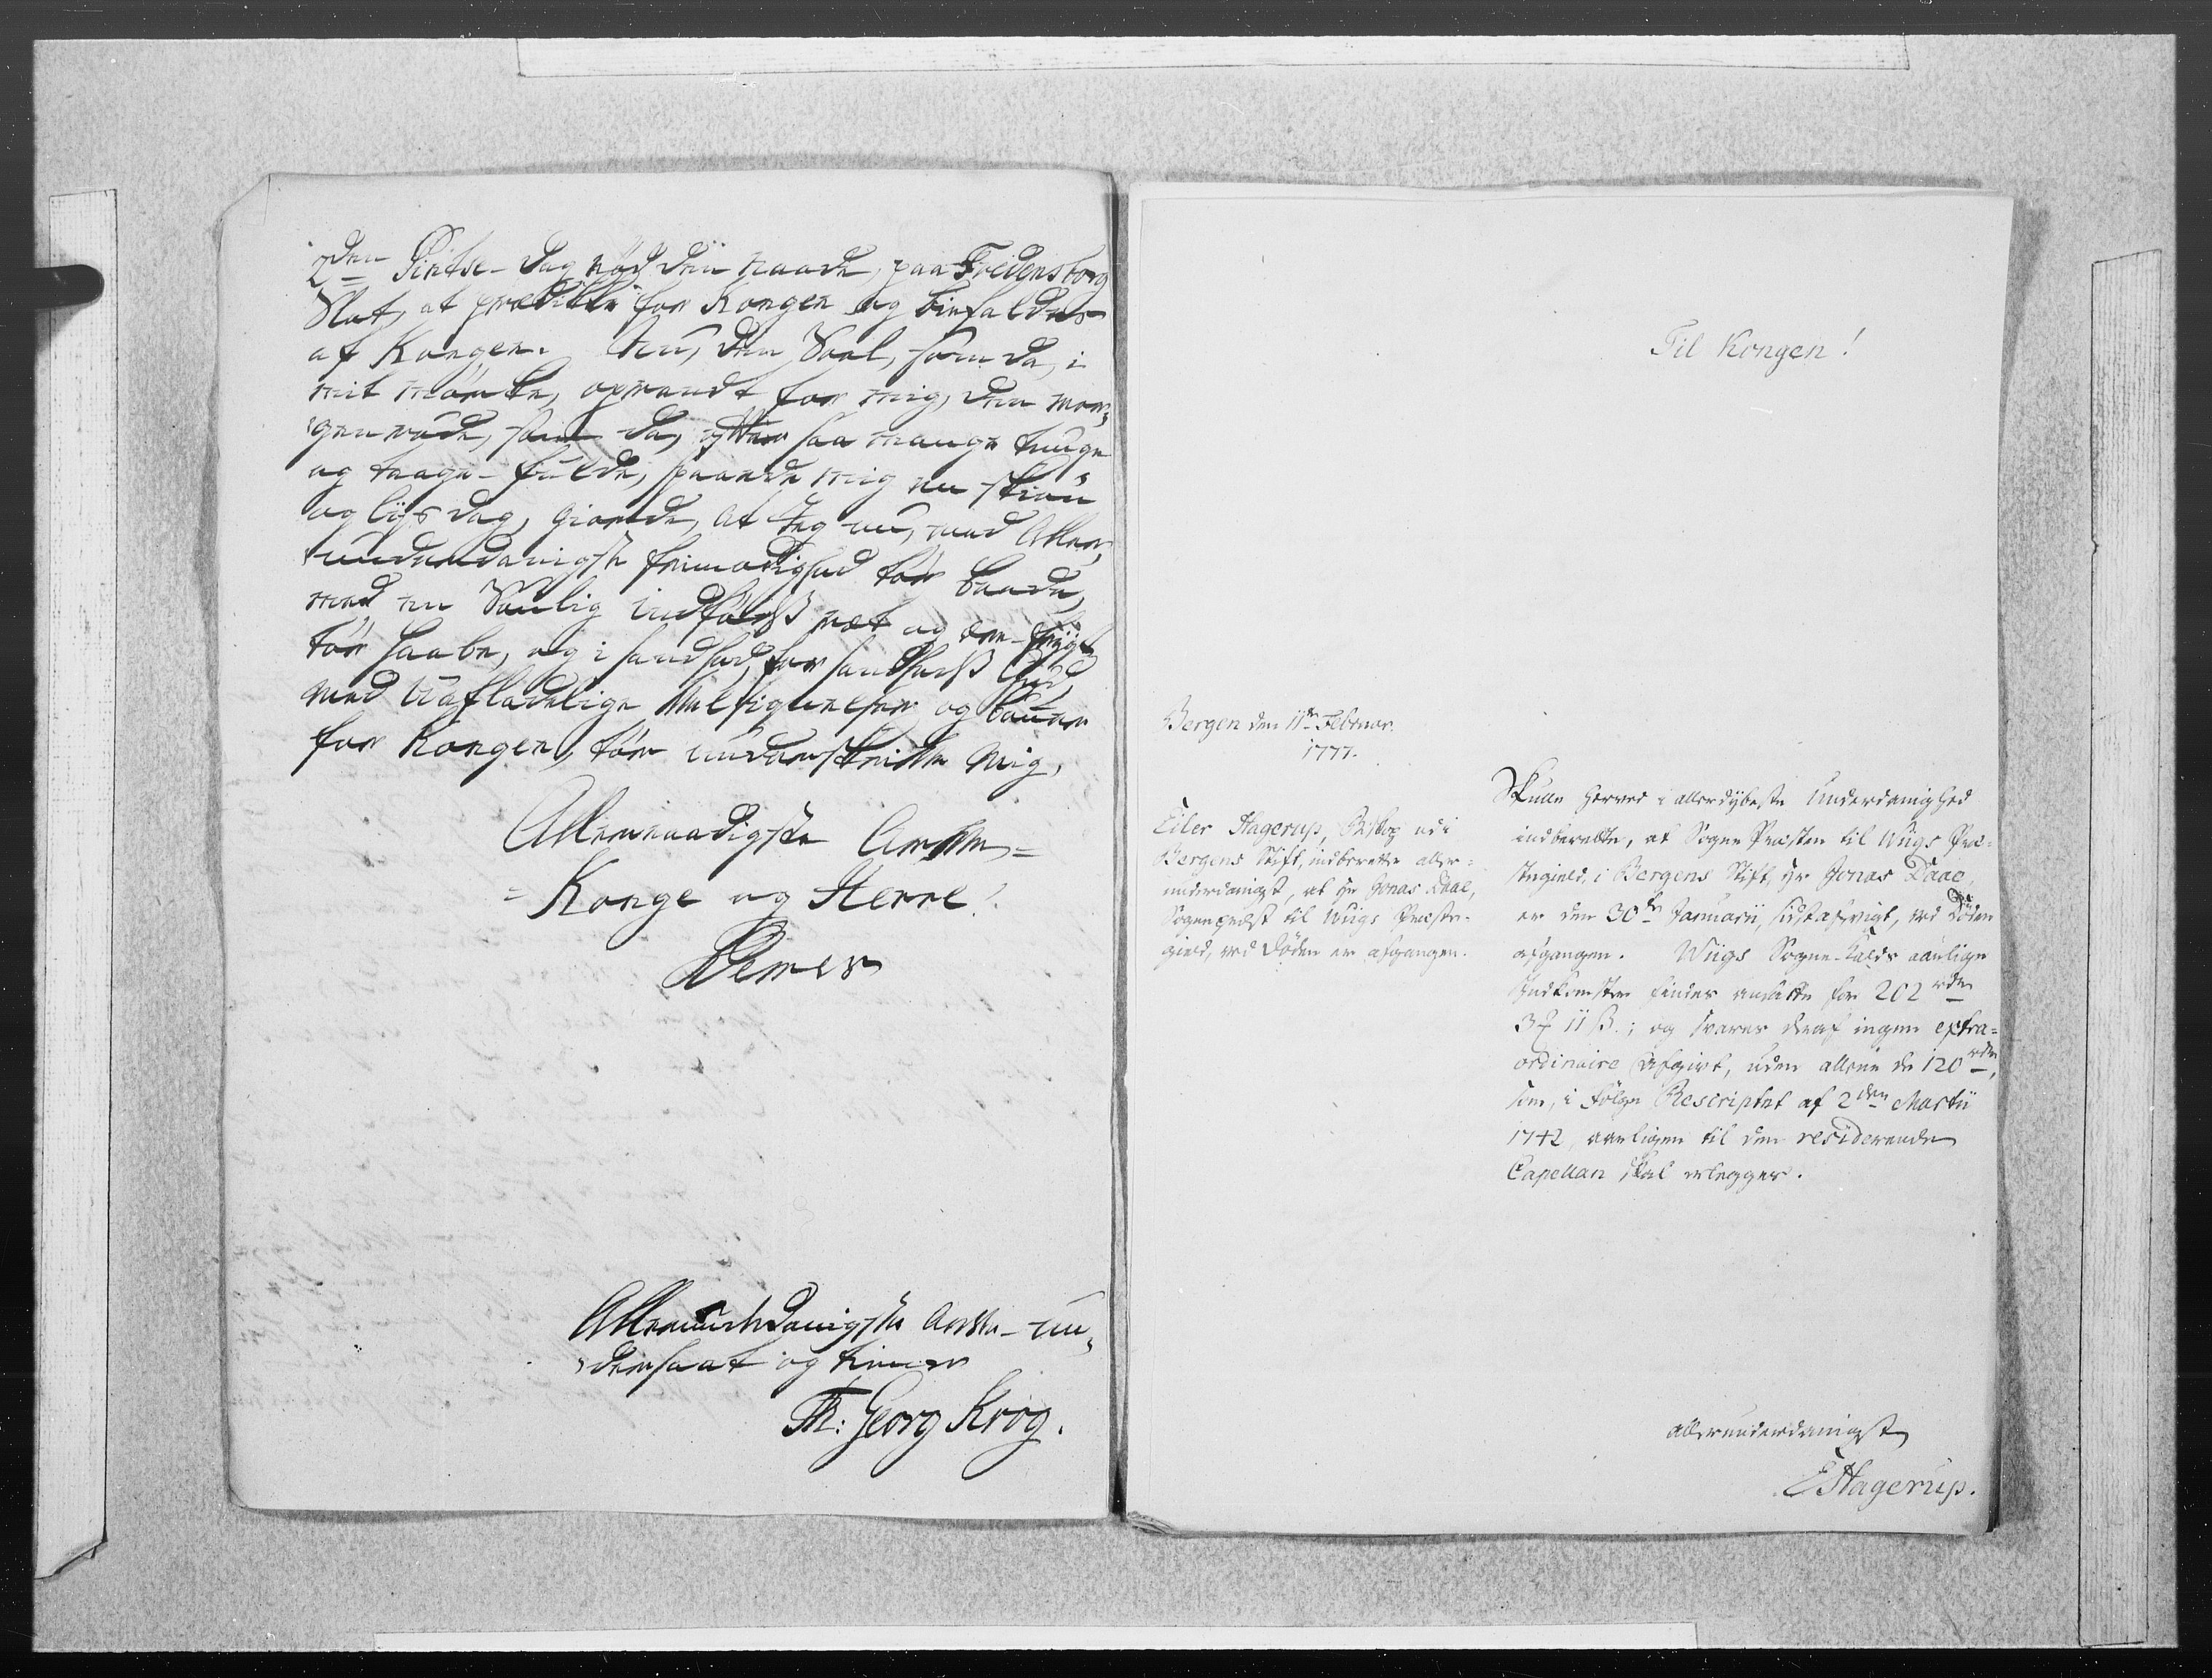 2den Pintse-dag nød den Naade, paa Fredensborg
Slot, at prædike for Kongen og biefaldes
af Kongen. Nu, den Soel, som da, i
mit mørke, oprandt for mig, den mor,
genrøde, som da, efter saa mange tunge
og taage-fulde, spaaede mig en skiøn
og liys dag, giorde, at Jeg nu, med Aller,
underdanigste frimodighed tør baade,
med en Sønlig indføds ret og ære-frygt
tør haabe, og i sandhed, for sandheds Gud,
med uafladelige Velsignelser og bønner
for Kongen, tør underskrive mig,
Allernaadigste Arve=
=Konge og Herre!
Deres
Allerunderdanigste Arve-un,
dersaat og tiener
Th: Georg Krog.
Til Kongen!
Bergen den 11te Februar.
1777.
Eiler Hagerup, Biskop udi
Bergens Stift, indberetter aller=
underdanigst, at Hr Jonas Daae,
Sognepræst til Wiigs Præste-
gield, ved Døden er afgangen.
Skulle herved i allerdybeste Underdanighed
indberette, at Sogne Præsten til Wiigs Præ=
stegield, i Bergens Stift, Hr Jonas Daae
er den 30te Januarii, sidstafvigt, ved Døden
afgangen. Wiigs Sogne-Kalds aarlige
Indkomster findes ansatte for 202 rdr
3 ₰ 11 ß.; og svares deraf ingen extra=
ordinaire Afgivt, uden allene de 120 rdr,
som, i Følge Rescriptet af 2den Martii
1742, aarligen til den residerende
Capellan skal erlegges.
allerunderdanigst
E Hagerup.